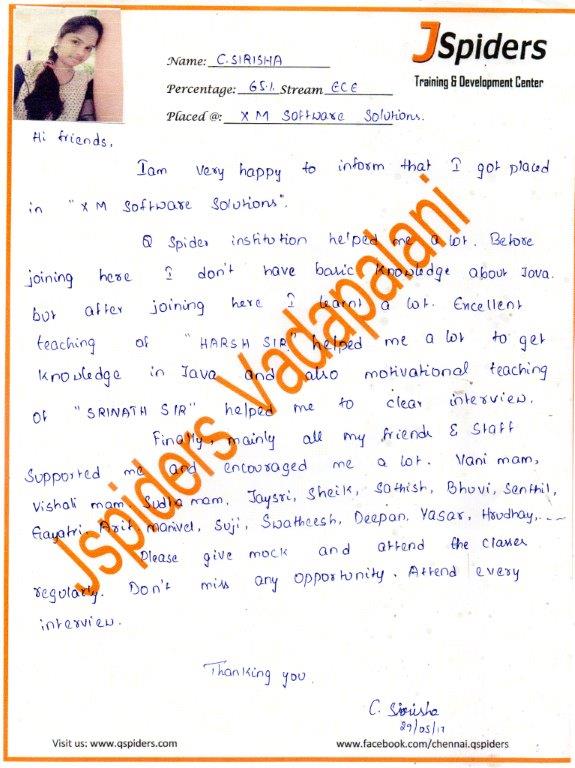 JSpiders
Training & Development Center
Name: C. SIRISHA
Percentage: 65% Stream ECE
Placed @: X M Software Solutions.
Hi friends,
Iam very happy to inform that I got placed
in "X M Software Solutions".
Q Spider institution helped me a lot. Before
joining here I don't have basic knowledge about Java.
but after joining here I learnt a lot. Excellent
teaching of "HARSH SIR" helped me a lot to get
knowledge in Java and also motivational teaching
of "SRINATH SIR" helped me to clear interview.
Finally, mainly all my friends & Staff
Supported me and encouraged me a lot. Vani mam,
Vishali mam, Sudha mam, Jaysri, Sheik, Sathish, Bhuvi, Senthil,
Gayatri, Arit, Manivel, Suji, Swatheesh, Deepan, Yasar, Hrudhay,....
Please give mock and attend the classes
regularly. Don't miss any opportunity. Attend every
interview.
Thanking you.
C. Sirisha
29/05/17
Jspiders Vadapalani
Visit us: www.qspiders.com
www.facebook.com/chennai.qspiders